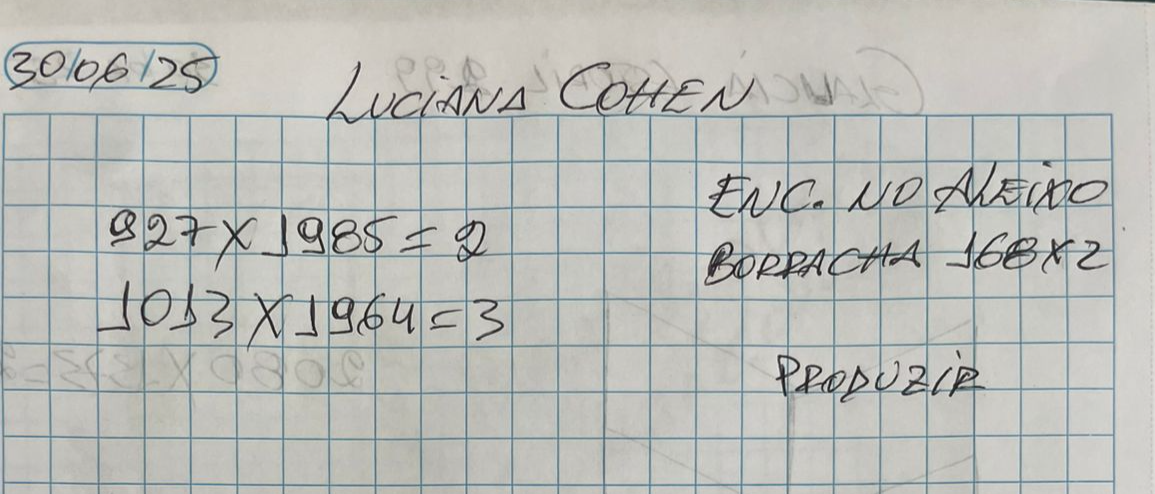 30/06/25
LUCIANA COHEN
ENC. NO ALEIXO
927 X 1985 = 2
BORRACHA 168 X 2
1013 X 1964 = 3
PRODUZIR